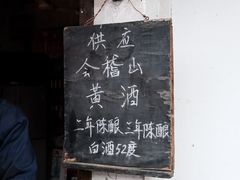 供应
会稽山
黄酒
二年陈酿 三年陈酿
白酒52度